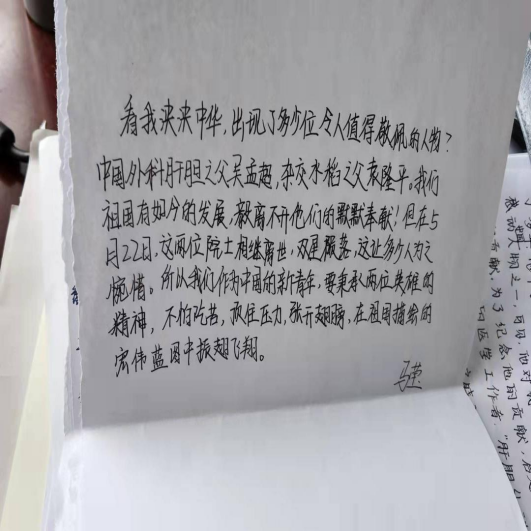 看我泱泱中华，出现了多少位令人值得敬佩的人物？
中国外科肝胆之父吴孟超，杂交水稻之父袁隆平。我们
祖国有如今的发展，都离不开他们的默默奉献！但在5
月22日，这两位院士相继离世，双星陨落，这让多少人为之
惋惜。所以我们作为中国的新青年，要秉承两位英雄的
精神，不怕吃苦，顶住压力，张开翅膀，在祖国描绘的
宏伟蓝图中振翅飞翔。
马莲
贡献，为了纪念他的贡献
的医学工作者，"肝胆